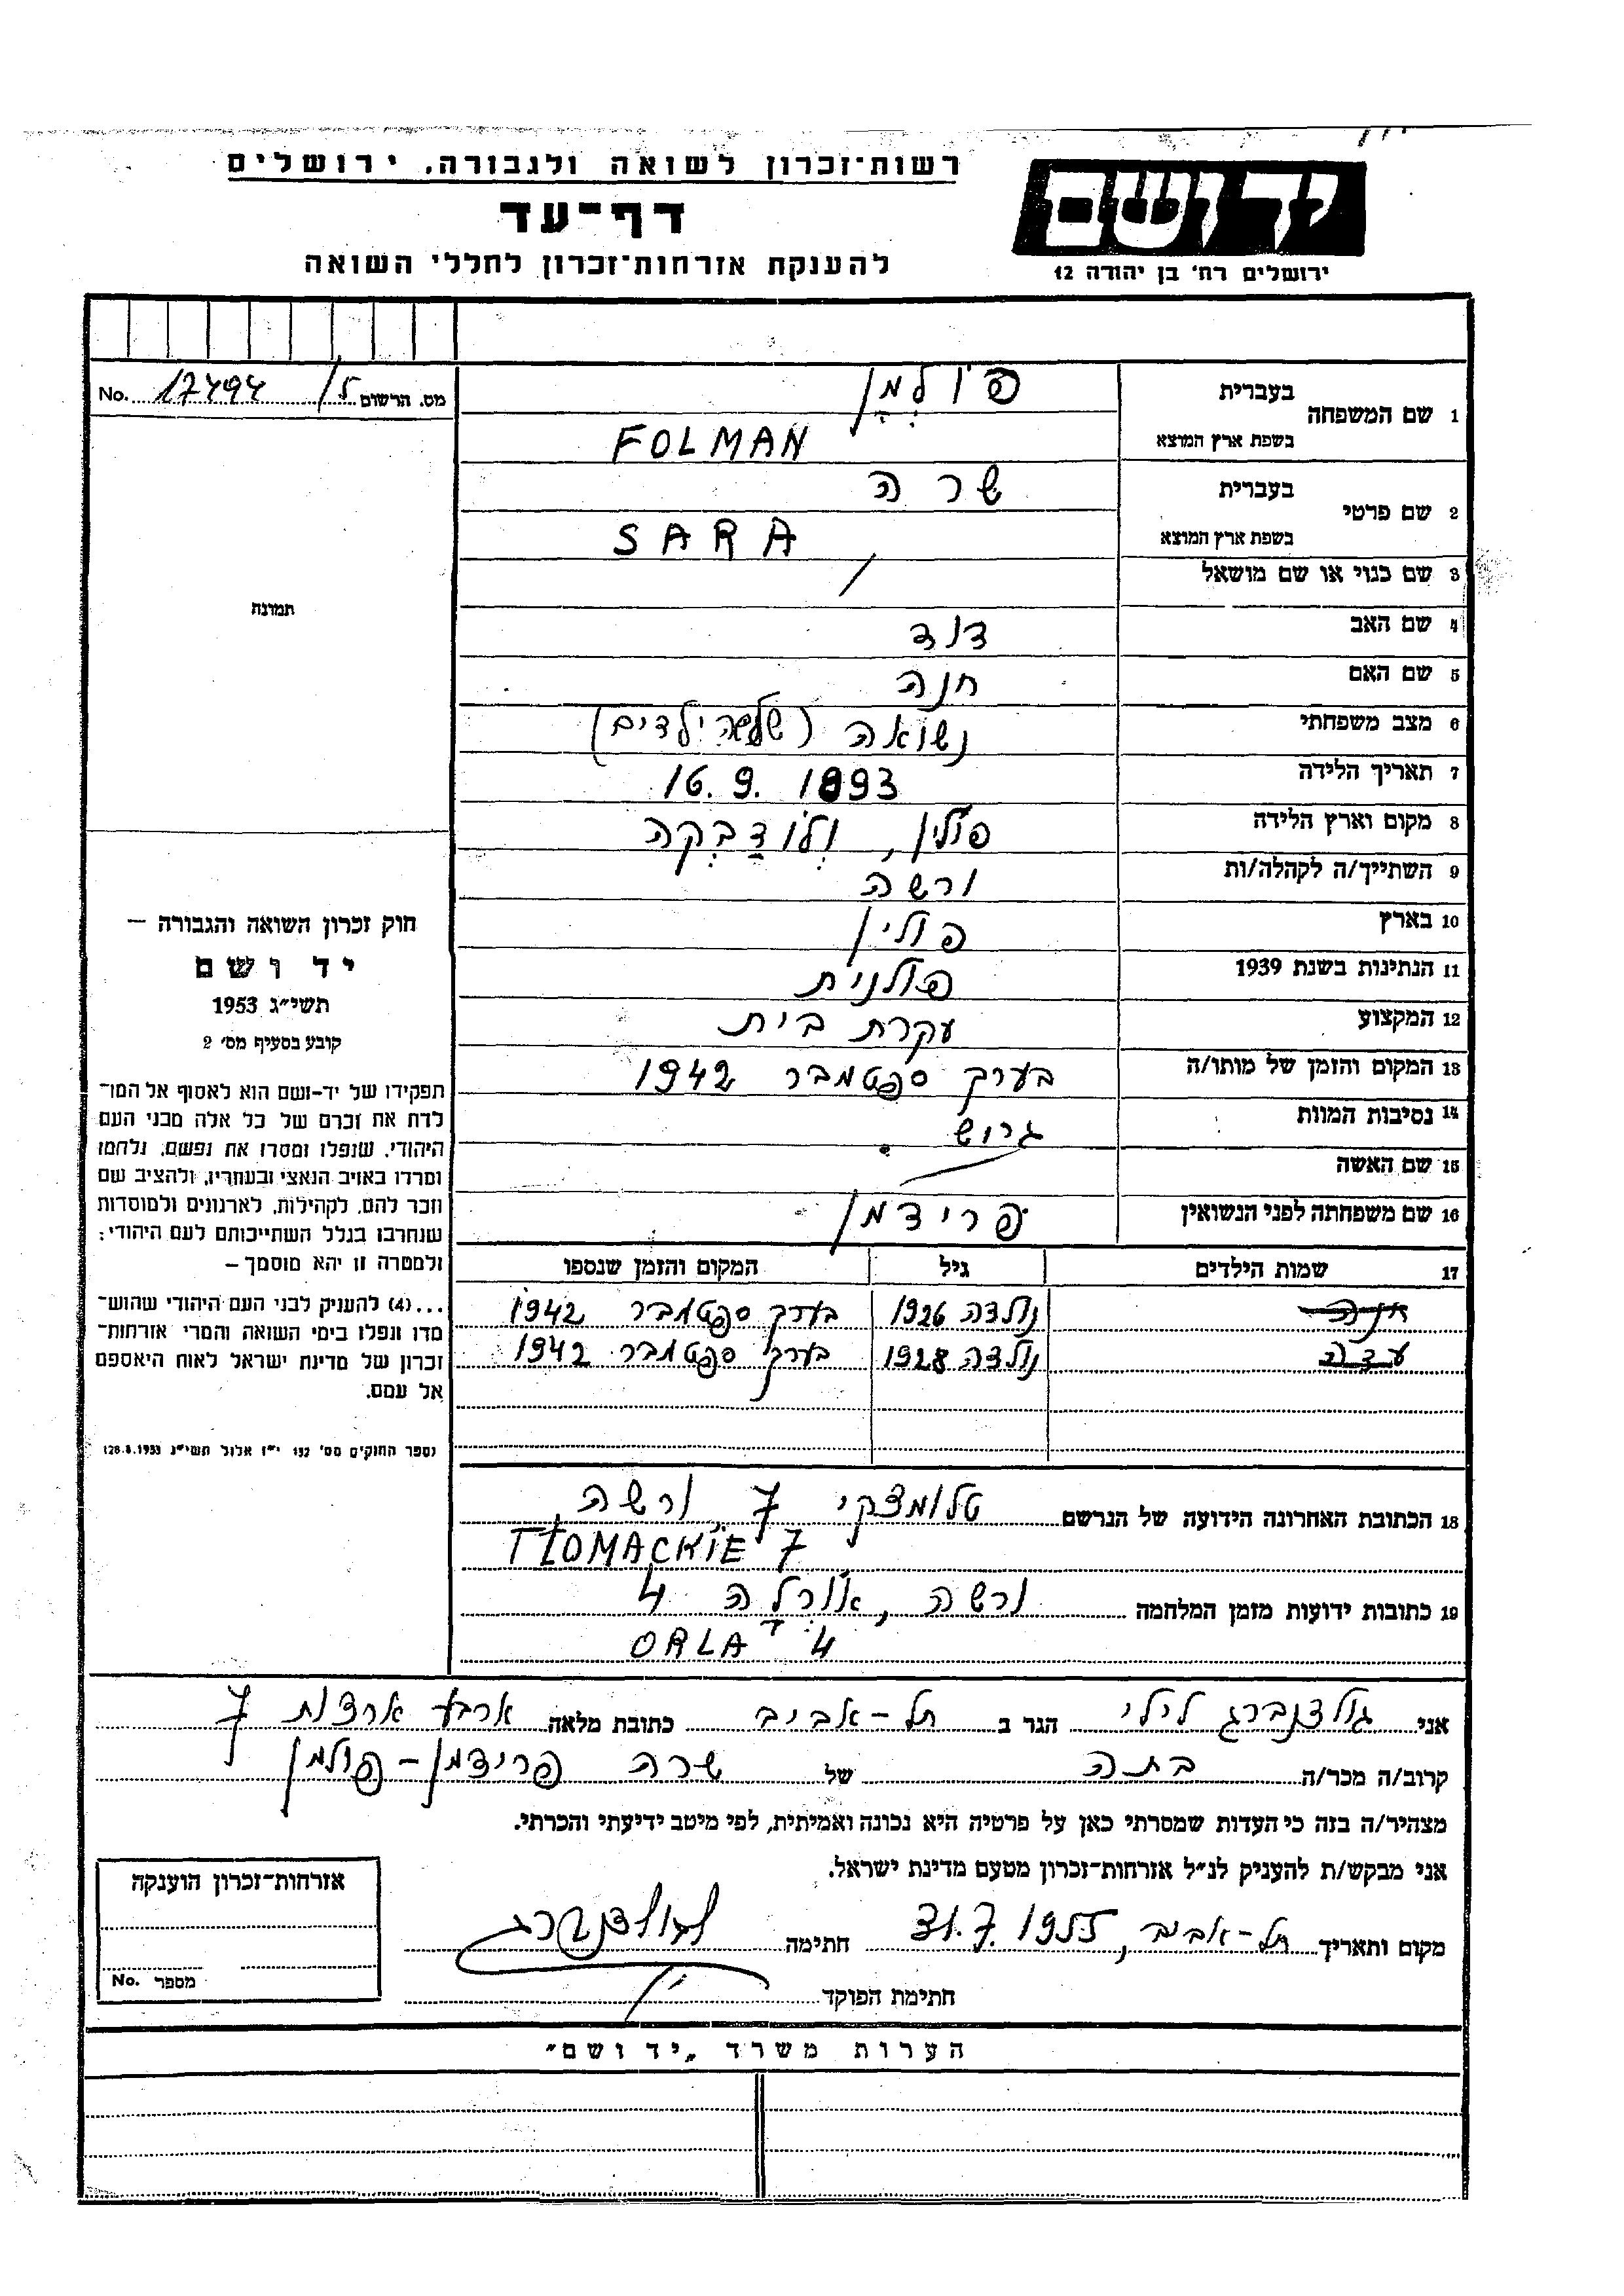 רשות־זכרון לשואה ולגבורה, ירושלים
דף־עד
להענקת אזרחות־זכרון לחללי השואה
יד ושם
ירושלים רח' בן יהודה 12
מס. הרשום 5/ 17494 No.
1 שם המשפחה בעברית פולמן
בשפת ארץ המוצא FOLMAN
2 שם פרטי בעברית שרה
בשפת ארץ המוצא SARA
3 שם כנוי או שם מושאל /
4 שם האב דוד
5 שם האם חנה
6 מצב משפחתי נשואה (שלשה ילדים)
7 תאריך הלידה 16.9.1893
8 מקום וארץ הלידה פולין, וְלוֹדַבְקה
9 השתייך/ה לקהלה/ות ורשה
10 בארץ פולין
11 הנתינות בשנת 1939 פולנית
12 המקצוע עקרת בית
13 המקום והזמן של מותו/ה בערך ספטמבר 1942
14 נסיבות המוות גרוש
15 שם האשה
16 שם משפחתה לפני הנשואין פרידמן
17 שמות הילדים גיל המקום והזמן שנספו
נולדה 1926 בערך ספטמבר 1942
עדה נולדה 1928 בערך ספטמבר 1942
18 הכתובת האחרונה הידועה של הנרשם טלומצקי 7 ורשה
TŁOMACKIE 7
19 כתובות ידועות מזמן המלחמה ורשה, אורלה 4
ORLA 4
תמונה
חוק זכרון השואה והגבורה —
יד ושם
תשי"ג 1953
קובע בסעיף מס' 2
תפקידו של יד-ושם הוא לאסוף אל המו־
לדת את זכרם של כל אלה מבני העם
היהודי, שנפלו ומסרו את נפשם, נלחמו
ומרדו באויב הנאצי ובעוזריו, ולהציב שם
וזכר להם, לקהילות, לארגונים ולמוסדות
שנחרבו בגלל השתייכותם לעם היהודי;
ולמטרה זו יהא מוסמך —
...(4) להעניק לבני העם היהודי שהוש־
מדו ונפלו בימי השואה והמרי אזרחות־
זכרון של מדינת ישראל לאות היאספם
אל עמם.
(ספר החוקים מס' 132 י"ז אלול תשי"ג 28.8.1953)
אני גולדנברג לילי הגר ב תל-אביב כתובת מלאה ארבע ארצות 7
קרוב/ה מכר/ה בתה של שרה פרידמן-פולמן
מצהיר/ה בזה כי העדות שמסרתי כאן על פרטיה היא נכונה ואמיתית, לפי מיטב ידיעתי והכרתי.
אני מבקש/ת להעניק לנ"ל אזרחות־זכרון מטעם מדינת ישראל.
מקום ותאריך תל-אביב, 31.7.1955 חתימה
חתימת הפוקד
אזרחות־זכרון הוענקה
מספר No.
הערות משרד „יד ושם"